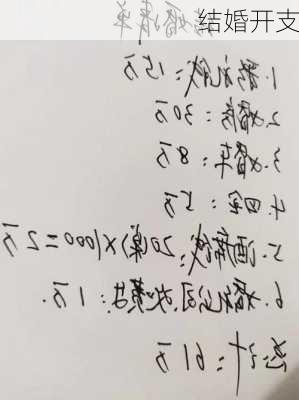 结婚开支
结婚清单
1.彩礼钱：15万
2.婚房：30万
3.婚车：8万
4.四金：5万
5.酒席钱：20(桌)×1000=2万
6.婚礼公司,改费其：1万.
总计：61万